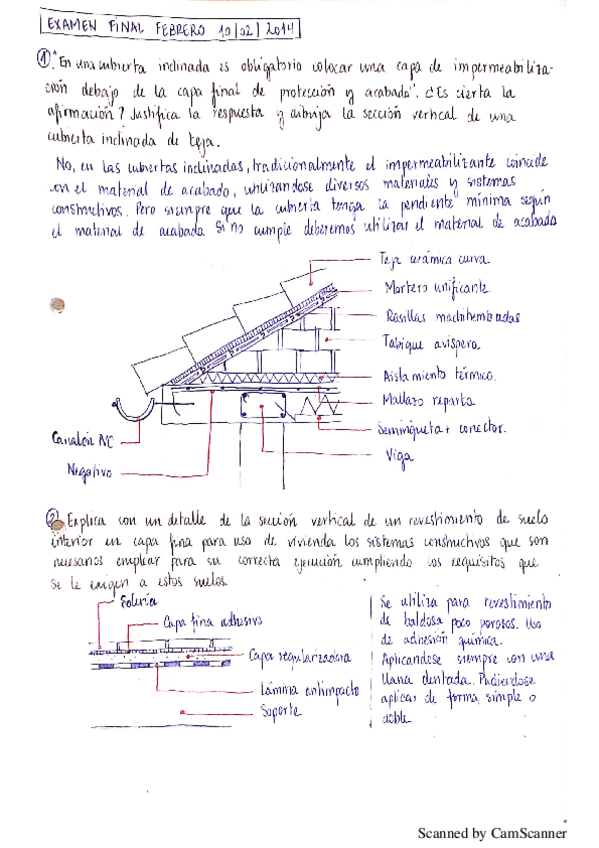 EXAMEN FINAL FEBRERO 10/02/2014
① "En una cubierta inclinada es obligatorio colocar una capa de impermeabiliza-
ción debajo de la capa final de protección y acabado". ¿Es cierta la
afirmación? Justifica la respuesta y dibuja la sección vertical de una
cubierta inclinada de teja.
No, en las cubiertas inclinadas, tradicionalmente el impermeabilizante coincide
en el material de acabado, utilizándose diversos materiales y sistemas
constructivos. Pero siempre que la cubierta tenga la pendiente mínima según
el material de acabado. Si no cumple deberemos utilizar el material de acabado
Teja cerámica curva
Mortero unificante
Rasillas machihembradas
Tabique avispero
Aislamiento térmico.
Mallazo reparto
Semivigueta + conector.
Viga
Canalón PVC
Negativo
② Explica con un detalle de la sección vertical de un revestimiento de suelo
interior en capa fina para uso de vivienda los sistemas constructivos que son
necesarios emplear para su correcta ejecución cumpliendo los requisitos que
se le exigen a estos suelos.
Solería
Capa fina adhesivo
Capa regularizadora
Lámina antiimpacto
Soporte
Se utiliza para revestimiento
de baldosa poco porosos. Uso
de adhesión química.
Aplicandose siempre con una
llana dentada. Pudiendose
aplicar de forma simple o
doble
Scanned by CamScanner